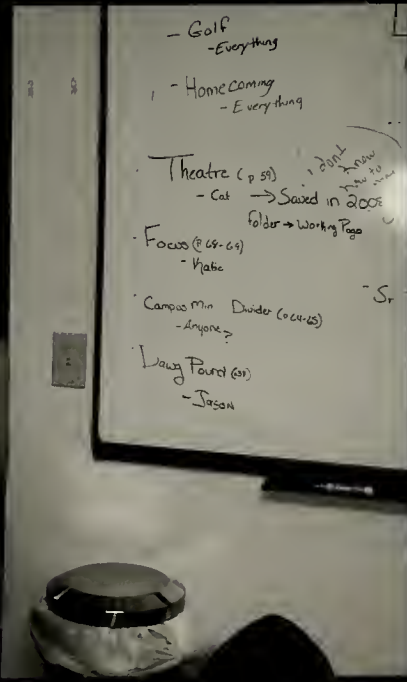 - Golf
- Everything
- Homecoming
- Everything
Theatre (p 59)
- Cat → Saved in 2008
folder → Working Page
i don't
know
how to
Focus (P. 68-69)
- Katie
Campus Min Divider (p 64-65)
- Anyone?
Dawg Pound
- Jason
- Sr